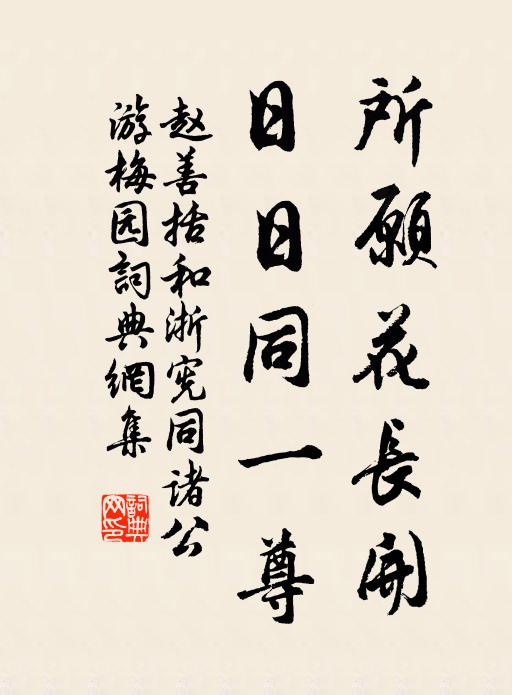 所願花長開
日日同一尊
赵善括和浙宪同诸公
游梅园詞典網集
詞典
网印